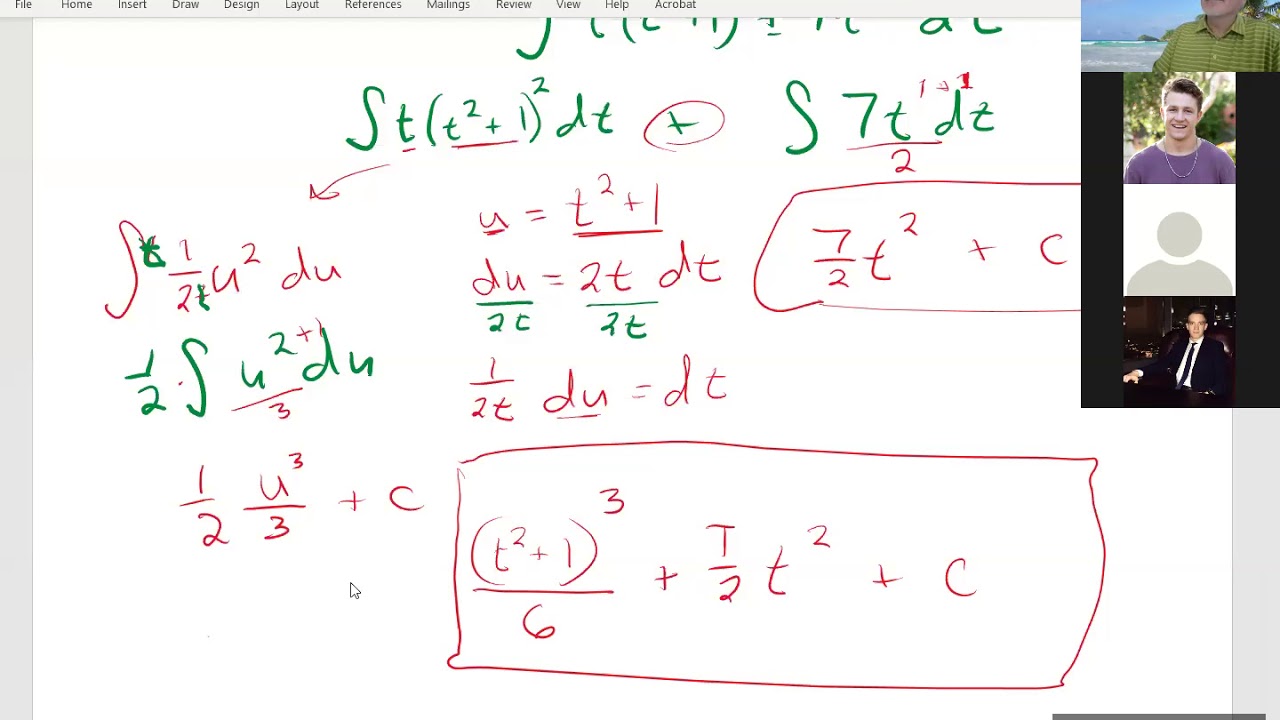 File Home Insert Draw Design Layout References Mailings Review View Help Acrobat
∫ t(t²+1)² dt + ∫ 7t¹⁺¹ dt / 2
u = t²+1
7/2 t² + C
∫ t 1/2t u² du
du = 2t dt
2t 2t
1/2 · ∫ u²⁺¹ du / 3
1/2t du = dt
1/2 u³/3 + C
(t²+1)³/6 + 7/2 t² + C